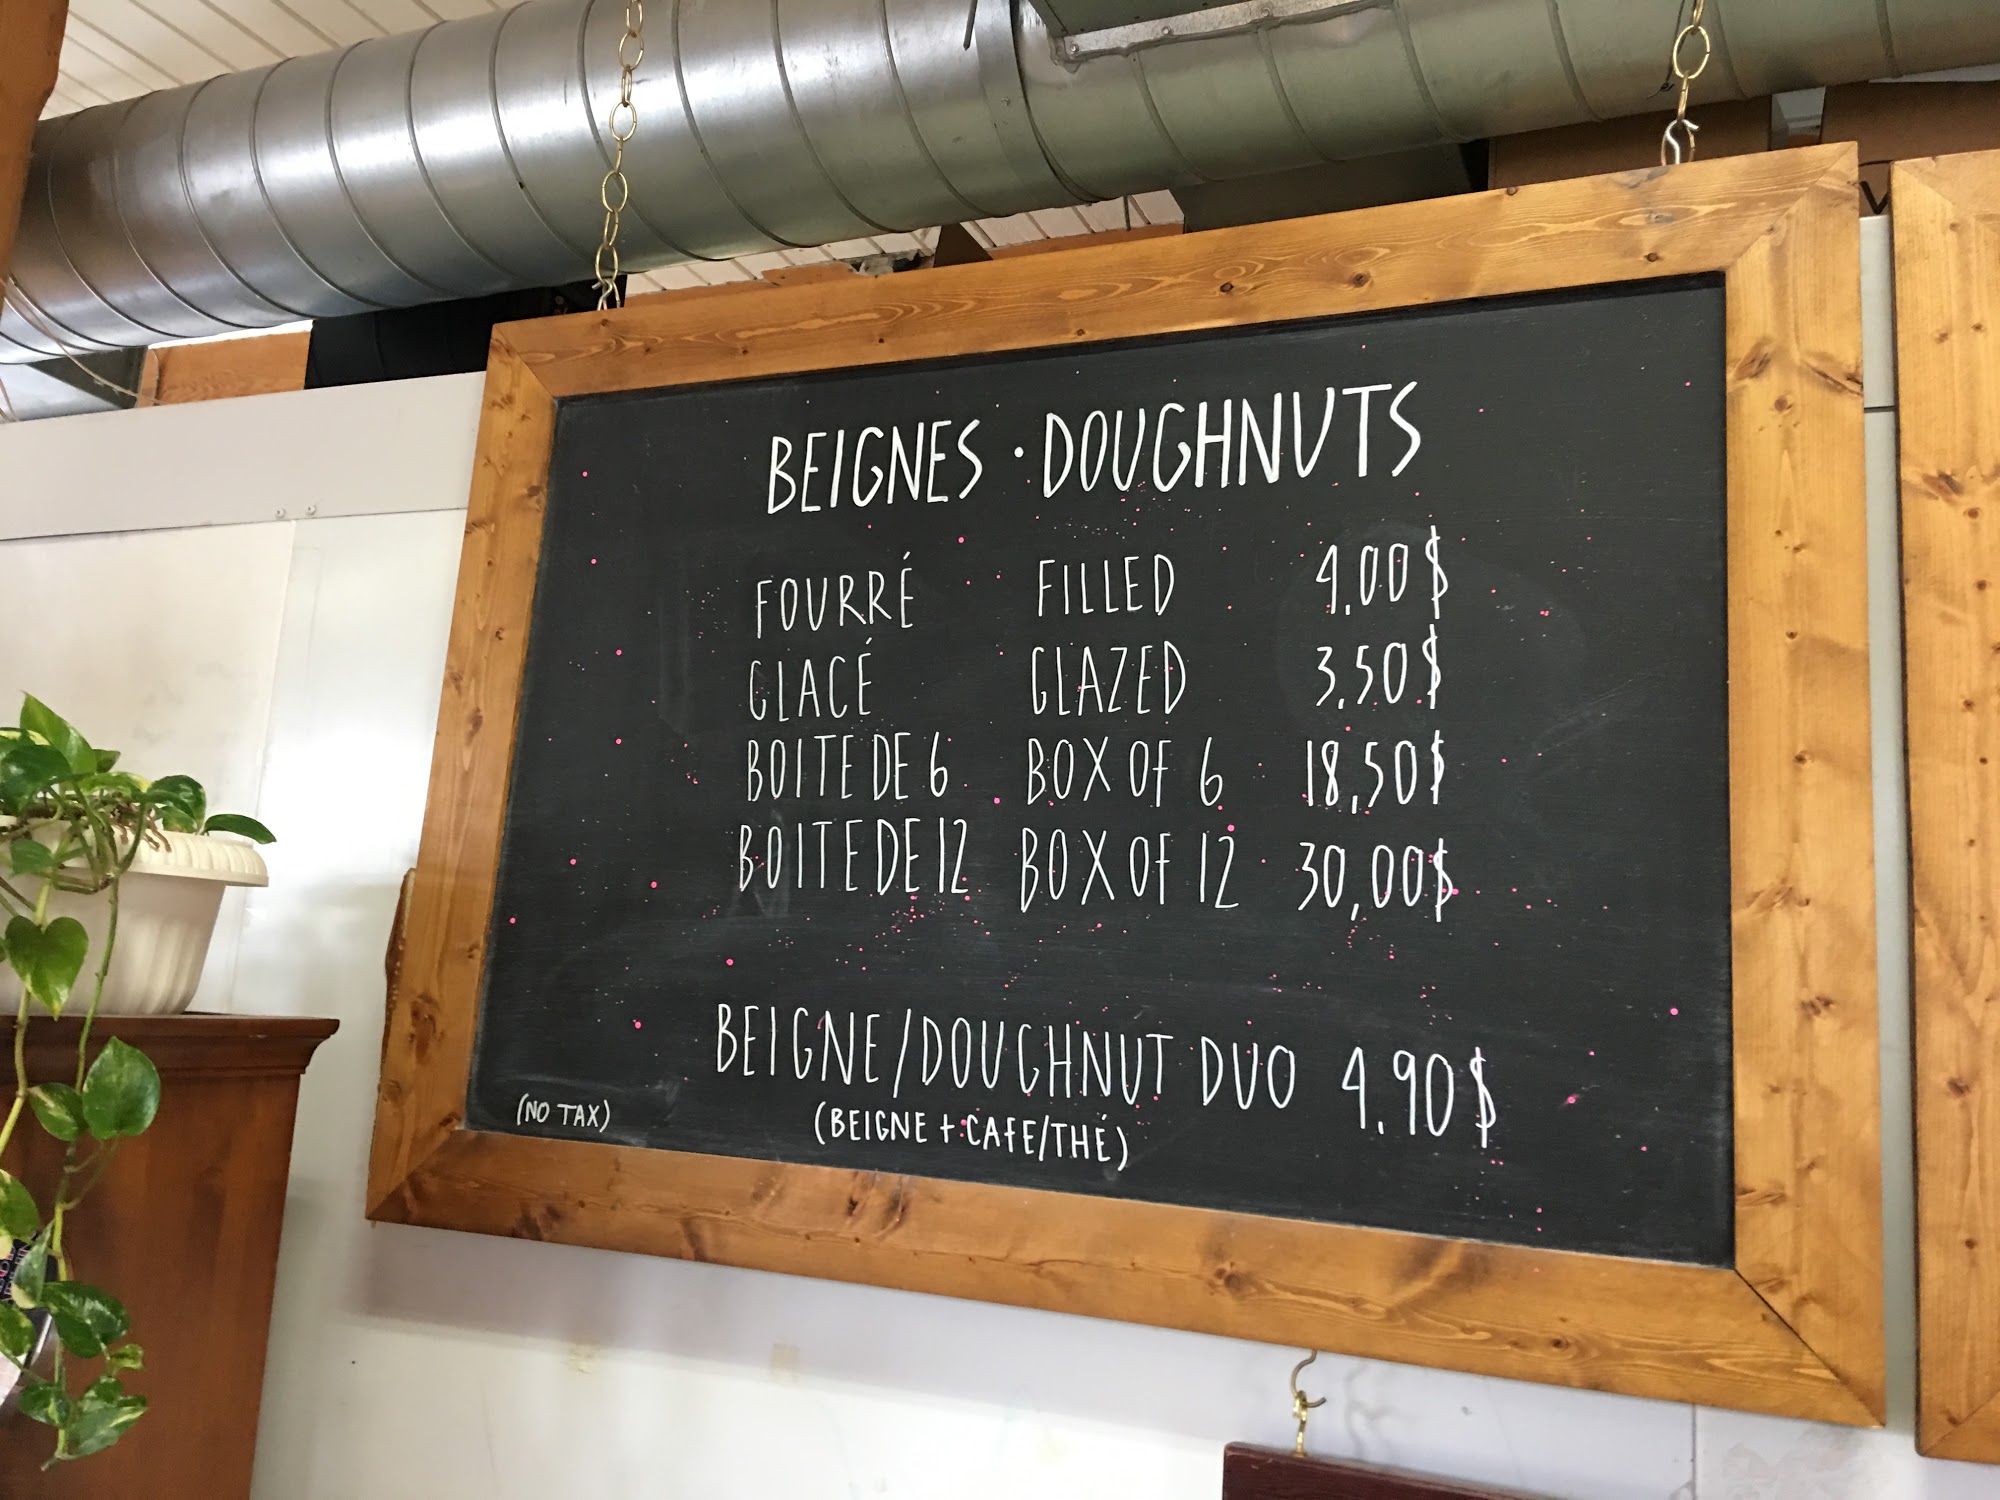 BEIGNES · DOUGHNUTS
FOURRÉ FILLED 4.00$
GLACÉ GLAZED 3.50$
BOITE DE 6 BOX OF 6 18,50$
BOITE DE 12 BOX OF 12 30,00$
BEIGNE/DOUGHNUT DUO 4.90$
(BEIGNE + CAFE/THÉ)
(NO TAX)